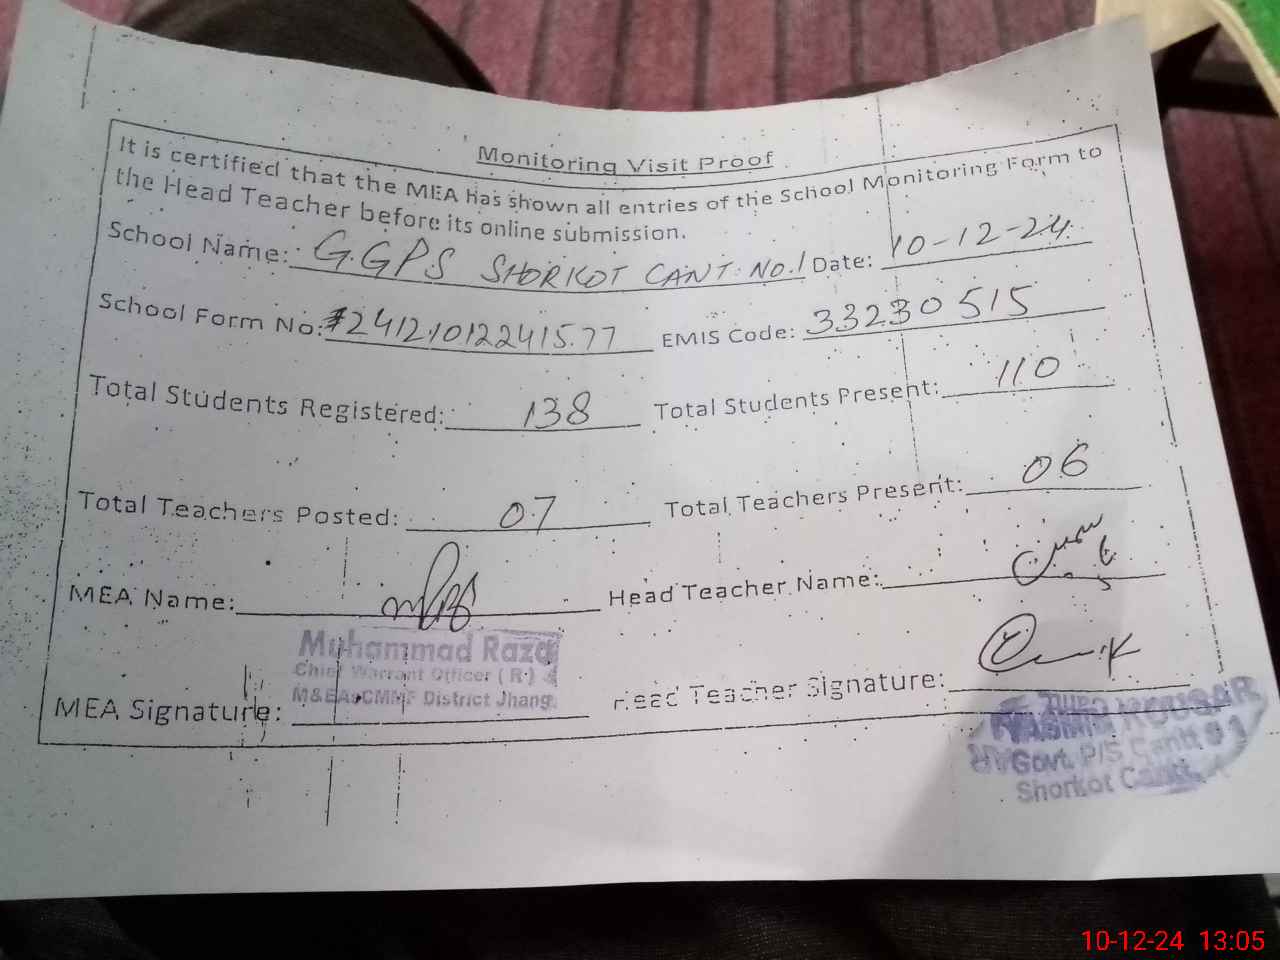 Monitoring Visit Proof
It is certified that the MEA has shown all entries of the School Monitoring Form to
the Head Teacher before its online submission.
School Name: GGPS SHORKOT CANT: NO.1 Date: 10-12-24
School Form No: 241210122415.77 EMIS Code: 33230515
Total Students Registered: 138 Total Students Present: 110
Total Teachers Posted: 07 Total Teachers Present: 06
MEA Name: Head Teacher Name:
Muhammad Raza
Chief Warrant Officer (R)
M&EA CMMF District Jhang.
MEA Signature: Head Teacher Signature:
KOUSAR
Govt. P/S Cantt # 1
Shorkot Cantt.
10-12-24 13:05